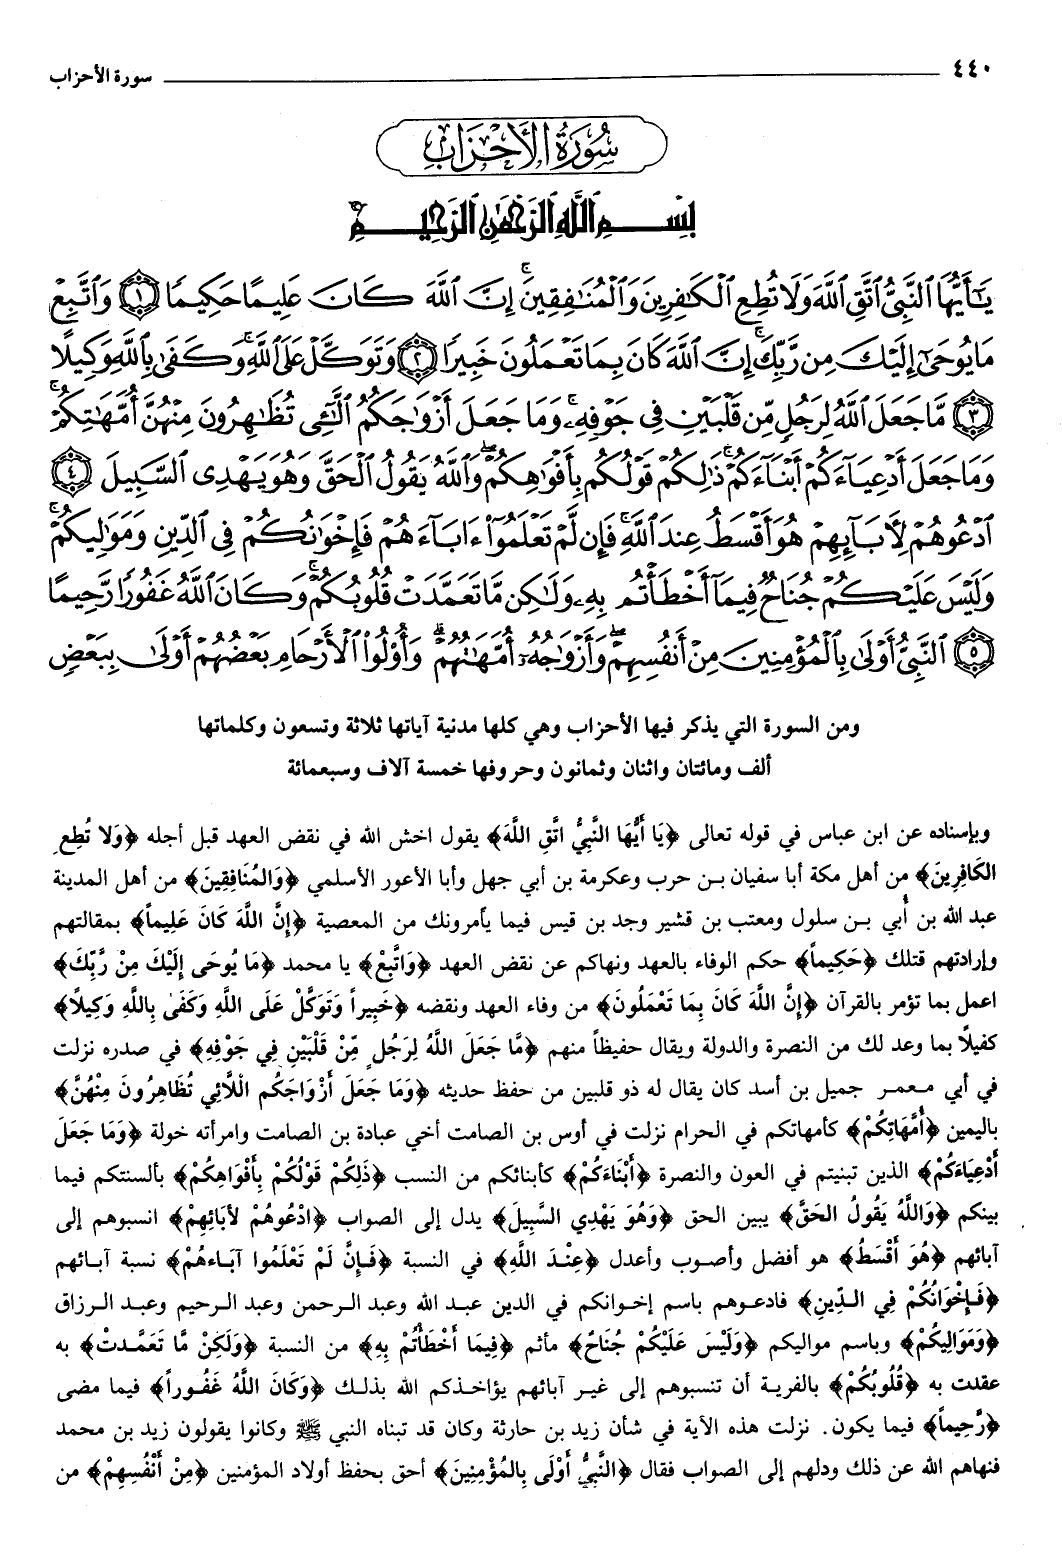 ٤٤٠ سورة الأحزاب
سُورَةُ الأَحْزَابِ
بِسْمِ ٱللَّهِ ٱلرَّحْمَٰنِ ٱلرَّحِيمِ
يَٰٓأَيُّهَا ٱلنَّبِىُّ ٱتَّقِ ٱللَّهَ وَلَا تُطِعِ ٱلْكَٰفِرِينَ وَٱلْمُنَٰفِقِينَ ۚ إِنَّ ٱللَّهَ كَانَ عَلِيمًا حَكِيمًا ١ وَٱتَّبِعْ
مَا يُوحَىٰٓ إِلَيْكَ مِن رَّبِّكَ ۚ إِنَّ ٱللَّهَ كَانَ بِمَا تَعْمَلُونَ خَبِيرًا ٢ وَتَوَكَّلْ عَلَى ٱللَّهِ ۚ وَكَفَىٰ بِٱللَّهِ وَكِيلًا
٣ مَّا جَعَلَ ٱللَّهُ لِرَجُلٍ مِّن قَلْبَيْنِ فِى جَوْفِهِۦ ۚ وَمَا جَعَلَ أَزْوَٰجَكُمُ ٱلَّٰٓـِٔى تُظَٰهِرُونَ مِنْهُنَّ أُمَّهَٰتِكُمْ ۚ
وَمَا جَعَلَ أَدْعِيَآءَكُمْ أَبْنَآءَكُمْ ۚ ذَٰلِكُمْ قَوْلُكُم بِأَفْوَٰهِكُمْ ۖ وَٱللَّهُ يَقُولُ ٱلْحَقَّ وَهُوَ يَهْدِى ٱلسَّبِيلَ ٤
ٱدْعُوهُمْ لِـَٔابَآئِهِمْ هُوَ أَقْسَطُ عِندَ ٱللَّهِ ۚ فَإِن لَّمْ تَعْلَمُوٓا۟ ءَابَآءَهُمْ فَإِخْوَٰنُكُمْ فِى ٱلدِّينِ وَمَوَٰلِيكُمْ ۚ
وَلَيْسَ عَلَيْكُمْ جُنَاحٌ فِيمَآ أَخْطَأْتُم بِهِۦ وَلَٰكِن مَّا تَعَمَّدَتْ قُلُوبُكُمْ ۚ وَكَانَ ٱللَّهُ غَفُورًا رَّحِيمًا
٥ ٱلنَّبِىُّ أَوْلَىٰ بِٱلْمُؤْمِنِينَ مِنْ أَنفُسِهِمْ ۖ وَأَزْوَٰجُهُۥٓ أُمَّهَٰتُهُمْ ۗ وَأُو۟لُوا۟ ٱلْأَرْحَامِ بَعْضُهُمْ أَوْلَىٰ بِبَعْضٍ
ومن السورة التي يذكر فيها الأحزاب وهي كلها مدنية آياتها ثلاثة وتسعون وكلماتها
ألف ومائتان واثنان وثمانون وحروفها خمسة آلاف وسبعمائة
وبإسناده عن ابن عباس في قوله تعالى ﴿يَا أَيُّهَا النَّبِيُّ اتَّقِ اللَّهَ﴾ يقول اخش الله في نقض العهد قبل أجله ﴿وَلا تُطِعِ
الكَافِرِينَ﴾ من أهل مكة أبا سفيان بن حرب وعكرمة بن أبي جهل وأبا الأعور الأسلمي ﴿وَالمُنَافِقِينَ﴾ من أهل المدينة
عبد الله بن أُبي بن سلول ومعتب بن قشير وجد بن قيس فيما يأمرونك من المعصية ﴿إِنَّ اللَّهَ كَانَ عَلِيماً﴾ بمقالتهم
وإرادتهم قتلك ﴿حَكِيماً﴾ حكم الوفاء بالعهد ونهاكم عن نقض العهد ﴿وَاتَّبِعْ﴾ يا محمد ﴿مَا يُوحَى إِلَيْكَ مِنْ رَّبِّكَ﴾
اعمل بما تؤمر بالقرآن ﴿إِنَّ اللَّهَ كَانَ بِمَا تَعْمَلُونَ﴾ من وفاء العهد ونقضه ﴿خَبِيراً وَتَوَكَّلْ عَلَى اللَّهِ وَكَفَىٰ بِاللَّهِ وَكِيلاً﴾
كفيلاً بما وعد لك من النصرة والدولة ويقال حفيظاً منهم ﴿مَّا جَعَلَ اللَّهُ لِرَجُلٍ مِّنْ قَلْبَيْنِ فِي جَوْفِهِ﴾ في صدره نزلت
في أبي معمر جميل بن أسد كان يقال له ذو قلبين من حفظ حديثه ﴿وَمَا جَعَلَ أَزْوَاجَكُم اللَّائِي تُظَاهِرُونَ مِنْهُنَّ﴾
باليمين ﴿أُمَّهَاتِكُمْ﴾ كأمهاتكم في الحرام نزلت في أوس بن الصامت أخي عبادة بن الصامت وامرأته خولة ﴿وَمَا جَعَلَ
أَدْعِيَاءَكُمْ﴾ الذين تبنيتم في العون والنصرة ﴿أَبْنَاءَكُمْ﴾ كأبنائكم من النسب ﴿ذَلِكُمْ قَوْلُكُمْ بِأَفْوَاهِكُمْ﴾ بألسنتكم فيما
بينكم ﴿وَاللَّهُ يَقُولُ الحَقَّ﴾ يبين الحق ﴿وَهُوَ يَهْدِي السَّبِيلَ﴾ يدل إلى الصواب ﴿ادْعُوهُمْ لآبَائِهِمْ﴾ انسبوهم إلى
آبائهم ﴿هُوَ أَقْسَطُ﴾ هو أفضل وأصوب وأعدل ﴿عِنْدَ اللَّهِ﴾ في النسبة ﴿فَإِنَّ لَمْ تَعْلَمُوا آبَاءَهُمْ﴾ نسبة آبائهم
﴿فَإِخْوَانُكُمْ فِي الدِّينِ﴾ فادعوهم باسم إخوانكم في الدين عبد الله وعبد الرحمن وعبد الرحيم وعبد الرزاق
﴿وَمَوَالِيكُمْ﴾ وباسم مواليكم ﴿وَلَيْسَ عَلَيْكُمْ جُنَاحٌ﴾ مأثم ﴿فِيمَا أَخْطَأْتُمْ بِهِ﴾ من النسبة ﴿وَلَكِنْ مَّا تَعَمَّدتْ﴾ به
عقلت به ﴿قُلُوبُكُمْ﴾ بالفرية أن تنسبوهم إلى غير آبائهم يؤاخذكم الله بذلك ﴿وَكَانَ اللَّهُ غَفُوراً﴾ فيما مضى
﴿رَّحِيماً﴾ فيما يكون. نزلت هذه الآية في شأن زيد بن حارثة وكان قد تبناه النبي ﷺ وكانوا يقولون زيد بن محمد
فنهاهم الله عن ذلك ودلهم إلى الصواب فقال ﴿النَّبِيُّ أَوْلَى بِالمُؤْمِنِينَ﴾ أحق بحفظ أولاد المؤمنين ﴿مِنْ أَنْفُسِهِمْ﴾ من